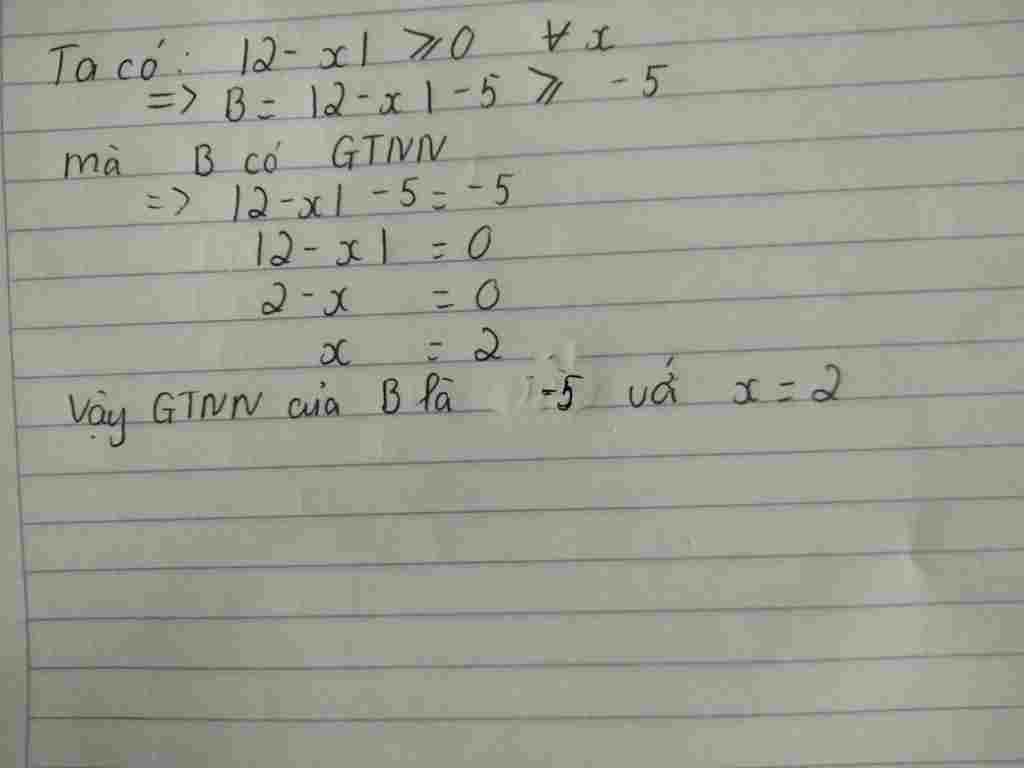 Ta có: |2 - x| ⩾ 0 ∀ x
=> B = |2 - x| - 5 ⩾ -5
mà B có GTNN
=> |2 - x| - 5 = -5
|2 - x| = 0
2 - x = 0
x = 2
Vậy GTNN của B là -5 với x = 2